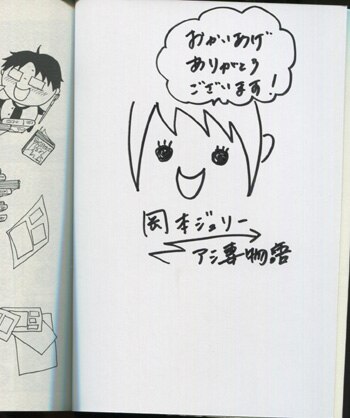 おかいあげ
ありがとう
ございます!
岡本ジョリー
アシ専物語